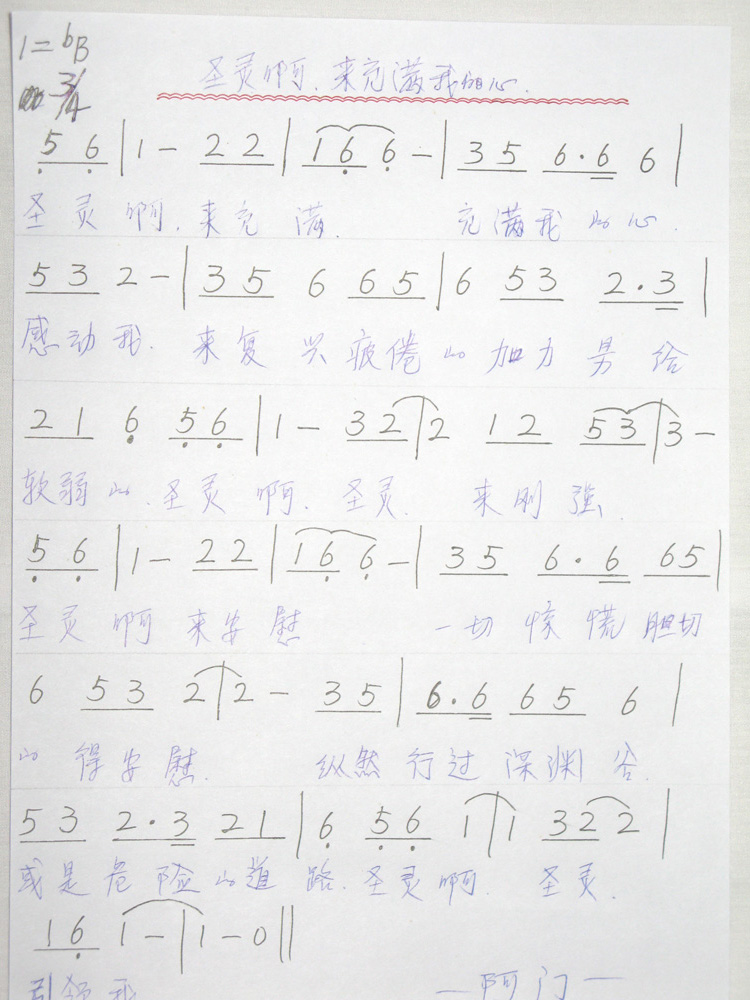 1=ᵇB
圣灵啊,来充满我的心.
3/4
5 6 | 1 - 2 2 | 1 6 6 - | 3 5 6·6 6 |
圣灵啊,来充满. 充满我的心.
5 3 2 - | 3 5 6 6 5 | 6 5 3 2·3 |
感动我.来复兴疲倦的加力另给
2 1 6 5 6 | 1 - 3 2 | 2 1 2 5 3 | 3 -
软弱的.圣灵啊.圣灵.来刚強.
5 6 | 1 - 2 2 | 1 6 6 - | 3 5 6·6 6 5 |
圣灵啊来安慰 一切惊慌胆切
6 5 3 2 | 2 - 3 5 | 6·6 6 5 6 |
的得安慰. 纵然行过深渊谷.
5 3 2·3 2 1 | 6 5 6 1 | 1 3 2 2 |
或是危险的道路.圣灵啊.圣灵.
1 6 1 - | 1 - 0 ||
引领我 —阿门—